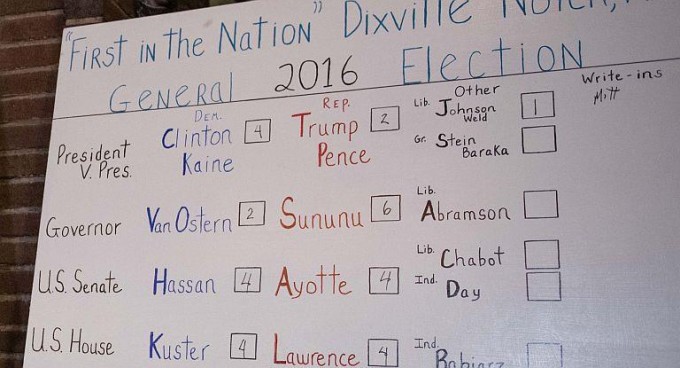 "First in the Nation" Dixville Notch,
General 2016 Election
Dem. Rep. Other Write-ins
President Clinton 4 Trump 2 Lib. Johnson 1 Mitt
V. Pres. Kaine Pence Weld
Gr. Stein
Baraka
Governor Van Ostern 2 Sununu 6 Lib. Abramson
Lib. Chabot
U.S. Senate Hassan 4 Ayotte 4 Ind. Day
U.S. House Kuster 4 Lawrence 4 Ind. Babiarz